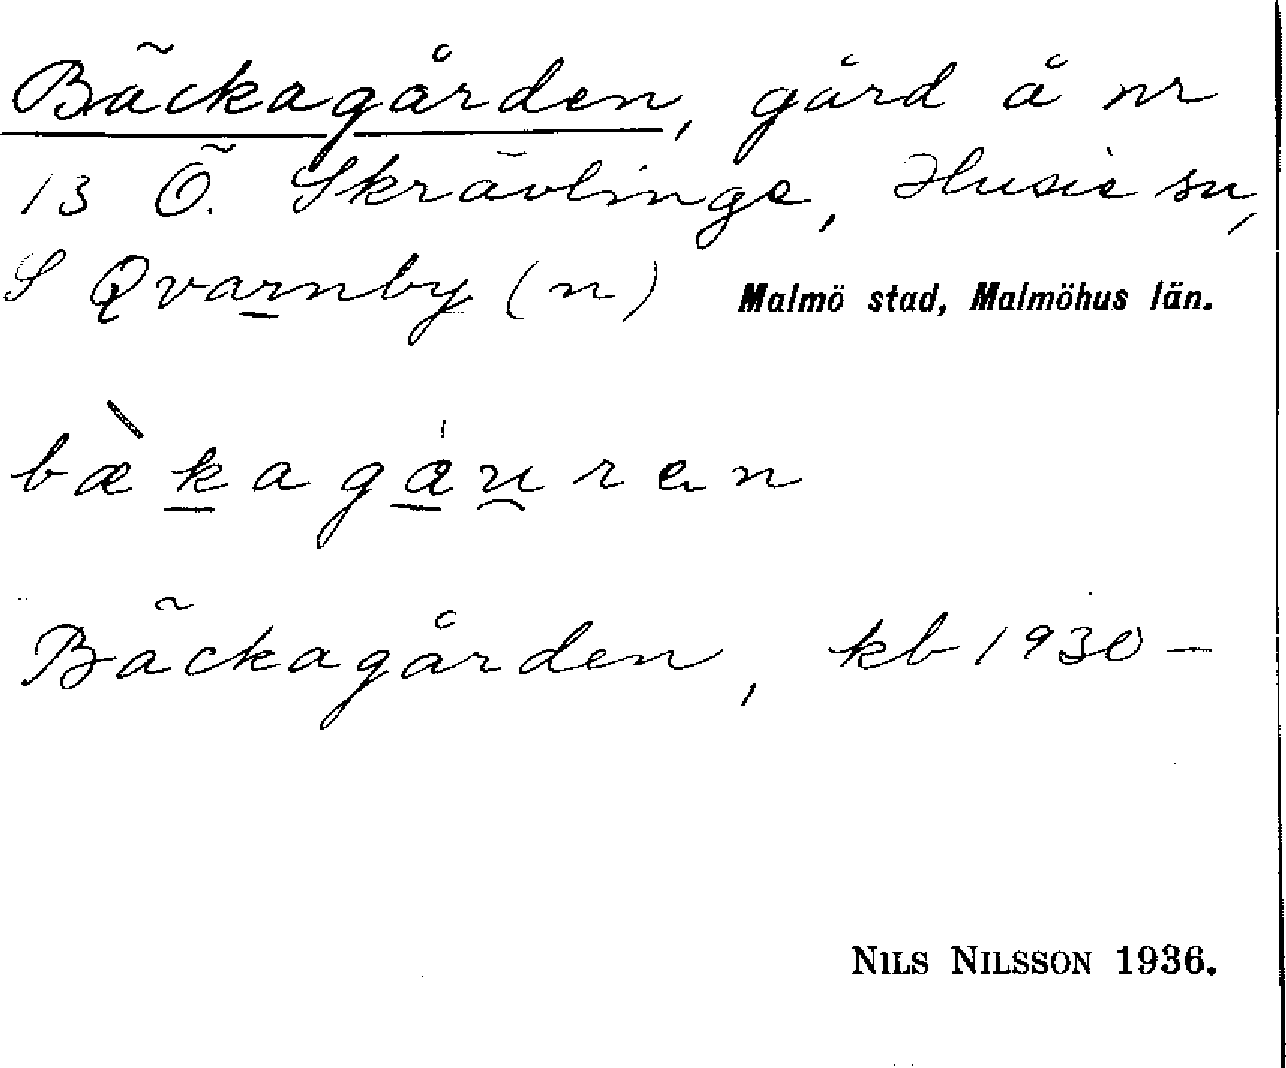 Bäckagården, gård å nr
13 Ö. Skrävlinge, Husie sn,
S Qvarnby (n) Malmö stad, Malmöhus län.
bækagáu̯ren
Bäckagården, kb 1930–
NILS NILSSON 1936.